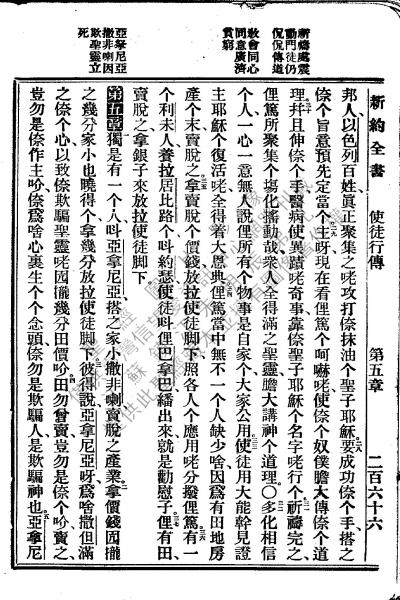 新約全書　使徒行傳　第五章　二百六十六
祈禱處震
動門徒仍
侃侃傳道
教會同心
同意廣濟
貧窮
亞拏尼亞
撒非喇因
欺聖靈立
死
邦人、以色列百姓、眞正聚集之咾攻打倷抹油个聖子耶穌、要成功倷个手、搭之
倷个旨意、預先定當个、主呀、現在看俚篤个呵嚇、咾使倷个奴僕、膽大傳倷个道
理、幷且伸倷个手醫病、使異蹟咾奇事、靠倷聖子耶穌个名字咾行个、祈禱完之
俚篤所聚集个場化搖動哉、衆人全得滿之聖靈、膽大講神个道理、〇多化相信
个人、一心一意、無人說俚所有个物事是自家个、大家公用、使徒用大能幹見證
主耶穌个復活、咾全得着大恩典、俚篤當中無不一个人缺少啥、因爲有田地房
產个、末賣脫之拿賣脫个價錢、放拉使徒脚下、照各人个應用咾分撥、俚篤有一
个利未人、養拉居比路个、呌約瑟、使徒呌俚巴拿巴、繙出來就是勸慰子、俚有田、
賣脫之、拿銀子來放拉使徒脚下、
第五章 獨是有一个人、呌亞拿尼亞、搭之家小撒非喇、賣脫之產業、拿價錢园攏
之幾分、家小也曉得个、拿幾分放拉使徒脚下、彼得說、亞拿尼亞呀、爲啥撒但滿
之倷个心、以致倷欺騙聖靈咾园攏幾分田價吤、田勿曾賣、豈勿是倷个吤、賣之
豈勿是倷作主吤、倷爲啥心裏生个个念頭、倷勿是欺騙人、是欺騙神也、亞拿尼